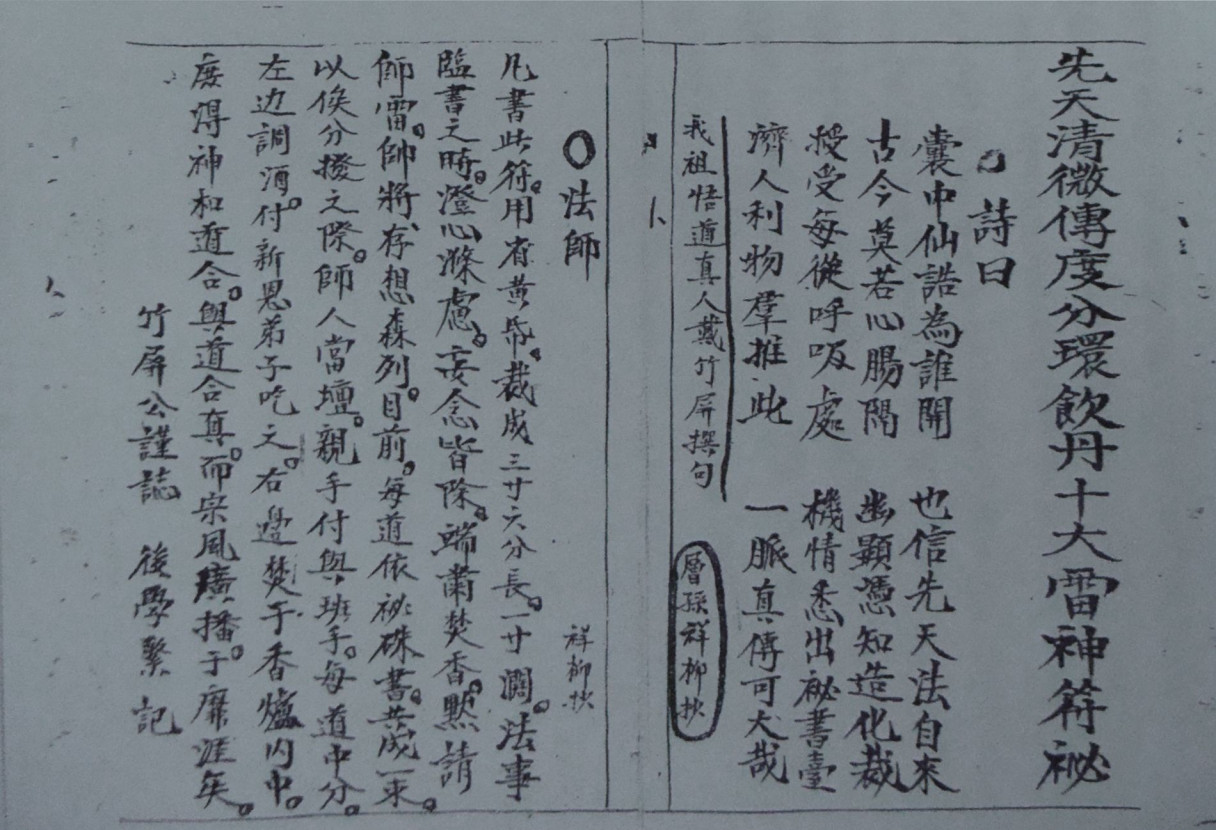 先天清微傳度分環飲丹十大雷神符祕
詩曰
囊中仙誥為誰開 也信先天法自來
古今莫若心腸隔 幽顯憑知造化裁
授受每從呼吸處 機情悉出祕書臺
濟人利物羣推此 一脈真傳可大哉
我祖悟道真人戴竹屏撰句 層孫祥柳抄
法師 祥柳抄
凡書此符。用省黄帋。裁成三寸六分長。一寸濶。法事
臨書之時。澄心滌慮。妄念皆除。端肅焚香。黙請
師雷。帥將、存想森列。目前。每道依祕硃書。共成一束。
以俟分撥之際。師人當壇。親手付與班手。每道中分。
左边調酒。付新恩弟子吃之。右邊焚于香爐内中。
庻得神和道合。與道合真。而宗風廣播于靡涯矣。
竹屏公謹誌 後學繫記